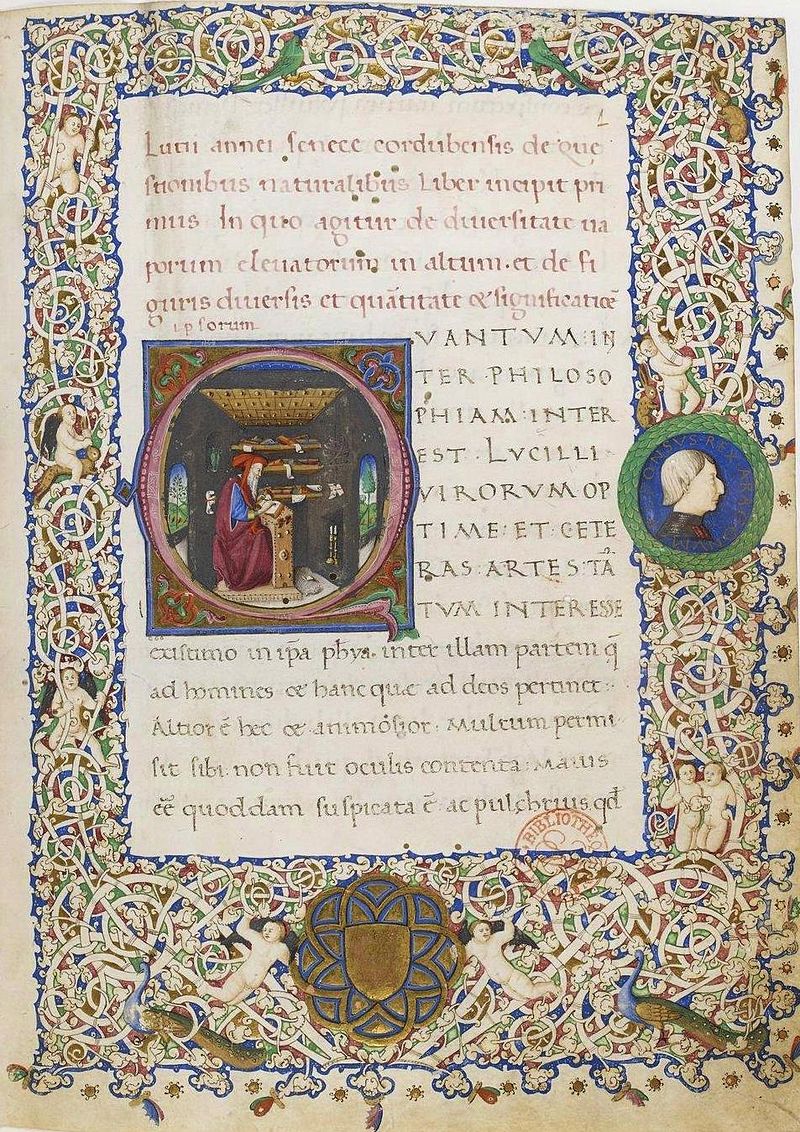 1
Lutii annei senece cordubensis de que
stionibus naturalibus liber incipit pri
mus In quo agitur de diversitate va
porum elevatorum in altum. et de fi
guris diversis et quãtitate & significatiõe
ipsorum
VANTVM: IN
TER PHILOSO
PHIAM: INTER
EST : LVCILLI
VIRORVM OP
TIME: ET: CETE
RAS: ARTES: TÃ
TVM INTERESSE
existimo in ip̃a phỹa. inter illam partem q̃
ad homines & hanc quae ad deos pertinet:
Altior ẽ hec & animosior: Multum permi
sit sibi. non fuit oculis contenta: Maius
eẽ quoddam suspicata ẽ. ac pulchrius qd̃
BIBLIOTHE
REX